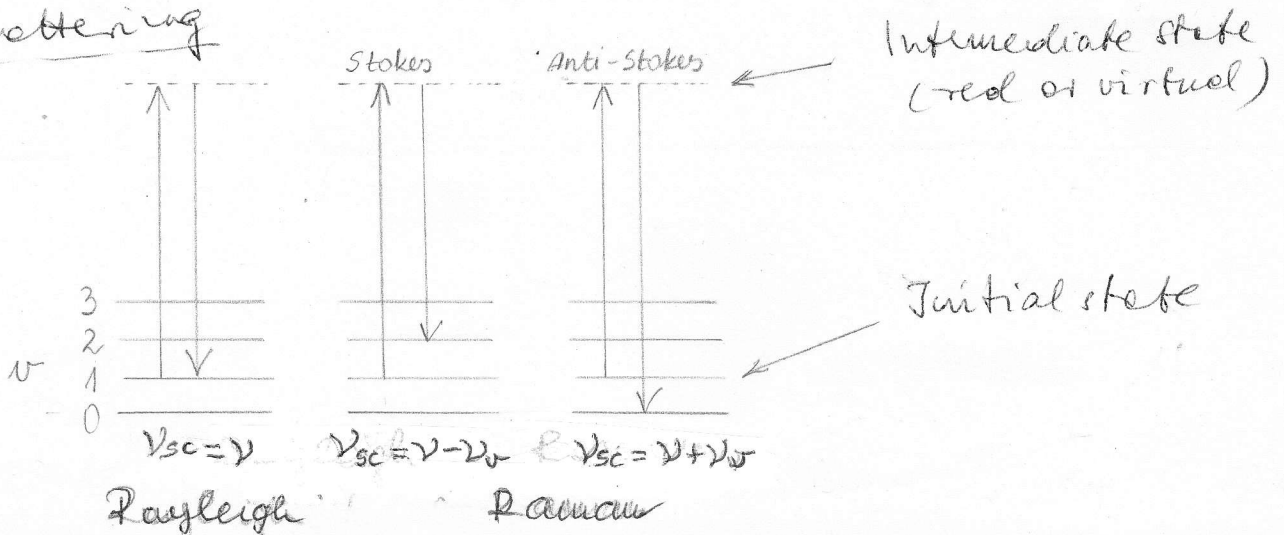 Stokes Anti-Stokes
Intermediate state
(real or virtual)
3
2
v 1
0
Initial state
νsc = ν νsc = ν - νv νsc = ν + νv
Rayleigh Raman